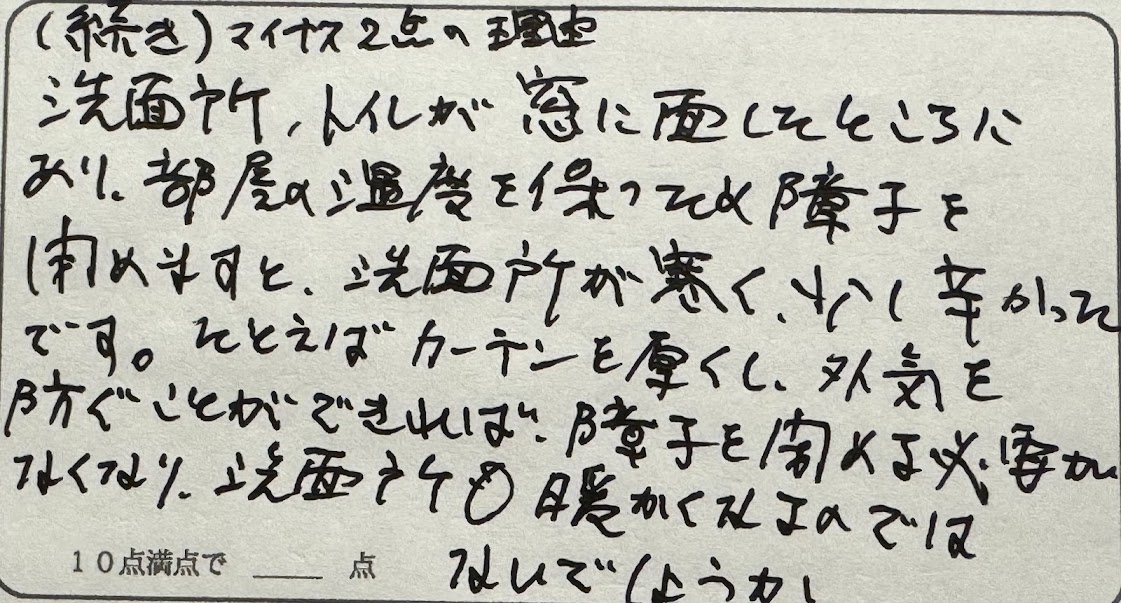 (続き)マイナス2点の理由
洗面所、トイレが窓に面したところに
あり、部屋の温度を保つため障子を
閉めますと、洗面所が寒く、少し辛かった
です。たとえばカーテンを厚くし、外気を
防ぐことができれば、障子を閉める必要が
なくなり、洗面所も暖かくなるのでは
ないでしょうか
10点満点で 点